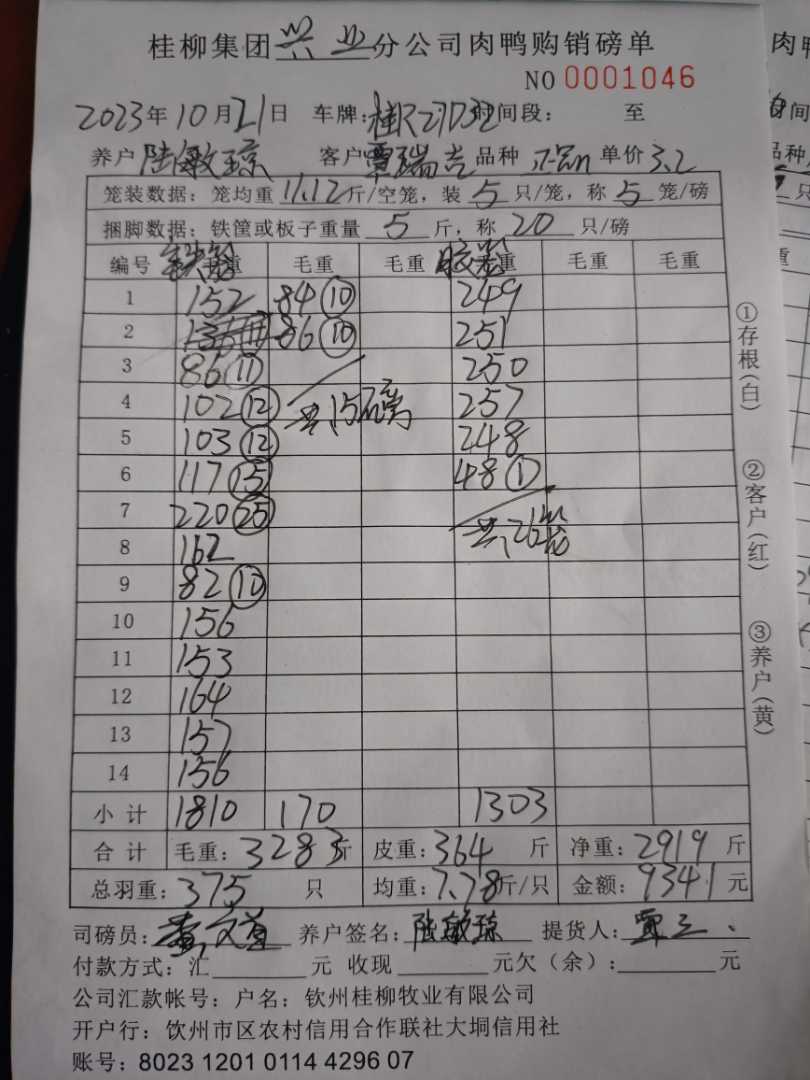 桂柳集团兴业分公司肉鸭购销磅单
NO 0001046
2023年10月21日 车牌:桂R27D32时间段: 至
养户陆敏琼 客户覃瑞吉品种 单价3.2
笼装数据: 笼均重11.12斤/空笼,装5只/笼,称5笼/磅
捆脚数据: 铁筐或板子重量5斤,称20只/磅
编号 铁笼毛重 毛重 毛重 胶笼毛重 毛重 毛重
1 152 84⑩ 249
2 86⑩ 251
3 86⑪ 250
4 102⑫ 共15磅 257
5 103⑫ 248
6 117⑮ 48①
7 220㉕ 共26笼
8 162
9 82⑩
10 156
11 153
12 164
13 157
14 156
小计 1810 170 1303
合计 毛重:3283斤 皮重:364斤 净重:2919斤
总羽重:375只 均重:7.78斤/只 金额:9341元
司磅员: 养户签名:陆敏琼 提货人:覃三
付款方式:汇 元 收现 元欠(余): 元
公司汇款帐号:户名:钦州桂柳牧业有限公司
开户行:饮州市区农村信用合作联社大垌信用社
账号:8023 1201 0114 4296 07
①存根(白)
②客户(红)
③养户(黄)